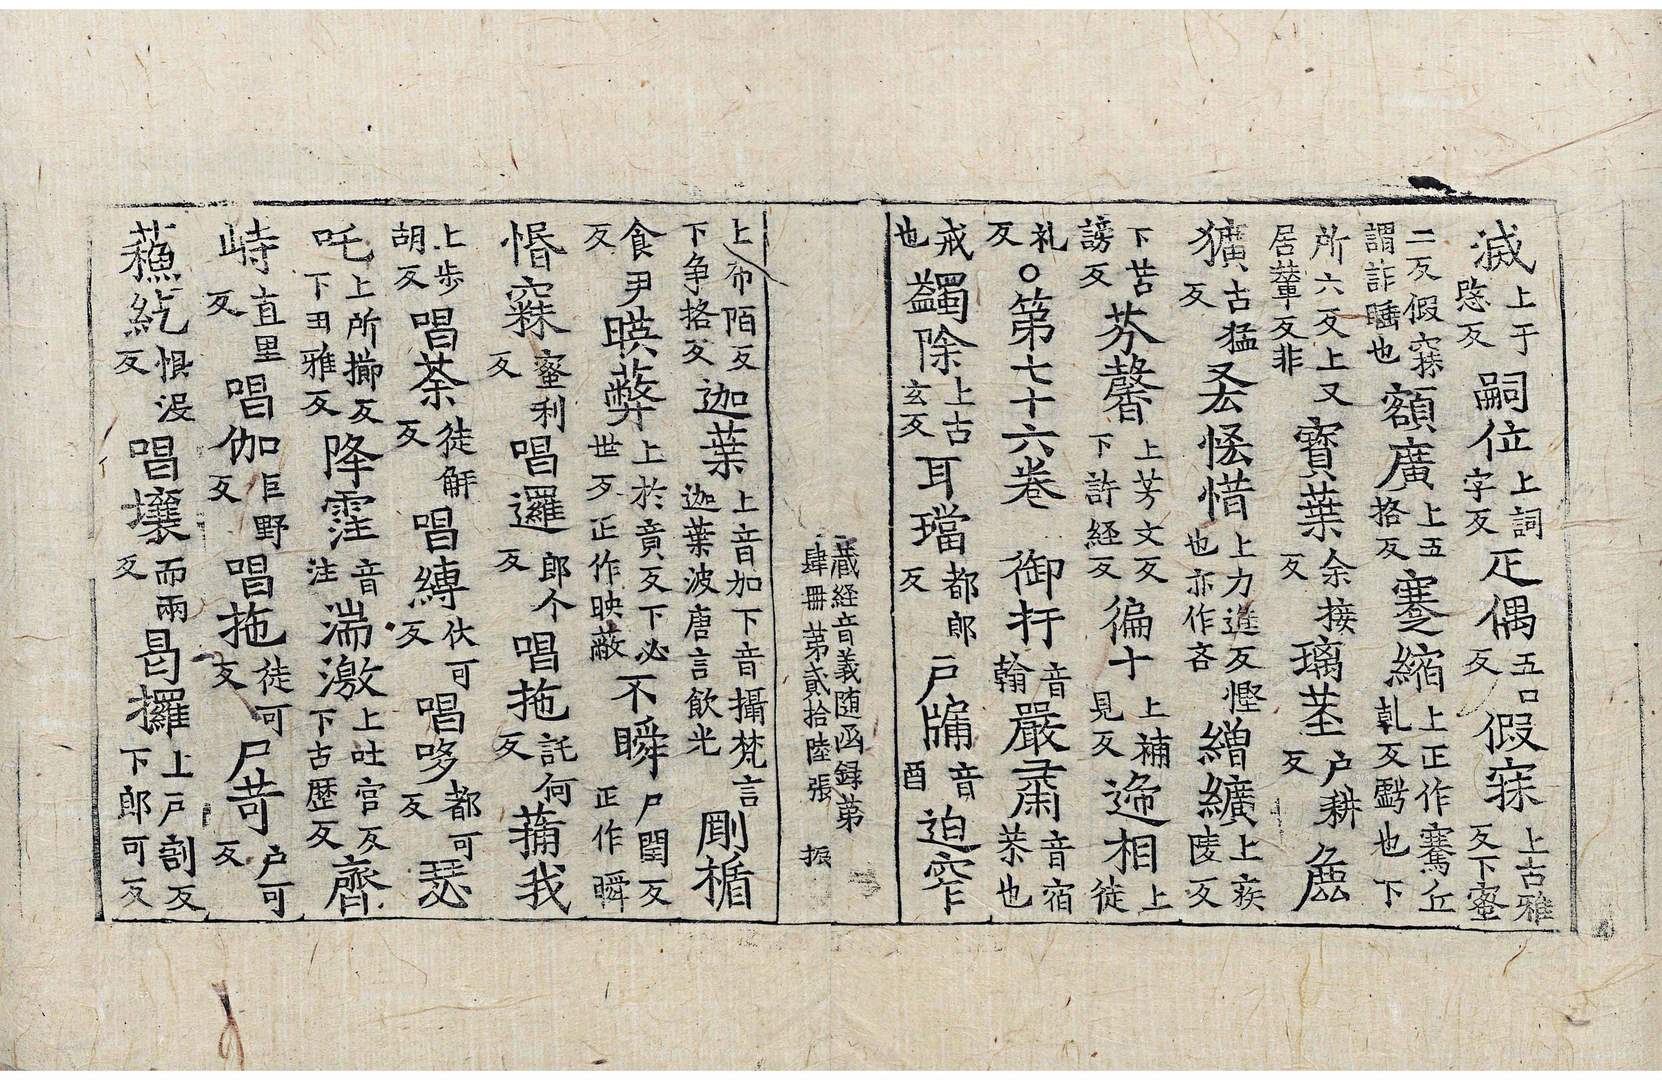 滅上于𭅺反嗣位上詞字反疋偶五口反假寐上古雅反下蜜
二反假寐謂詐睡也額廣上五格反蹇縮上正作騫丘乹反虧也下
所六反上又居輦反非寶葉余接反璃茎户耕反麁
獷古猛反㕁恡惜上力進反慳也亦作吝繒纊上疾陵反
下苦謗反芬馨上芳文反下許経反徧十上補見反递相上徒
礼反○第七十六卷　御扞音翰嚴肅音宿恭也
戒也蠲除上古玄反耳璫都郎反戸牗音酉迫窄
藏経音義随函録第肆冊第貳拾陸張　振
上布陌反下争挌反迦葉上音加下音攝梵言迦葉波唐言飲光剛楯
食尹反暎蔽上於竟反下必世反正作映蔽不瞬尸閏反正作瞬
惛寐蜜利反唱邏郎个反唱拖託何反蒱我
上步胡反唱荼徒解反唱縛伏可反唱哆都可反瑟
吒上所擳反下丑雅反降霔音注湍激上吐官反下古歴反齊
峙直里反唱伽巨野反唱拖徒可反尸苛户可反
蘓紇恨没反唱壤而兩反曷攞上戸割反下郎可反